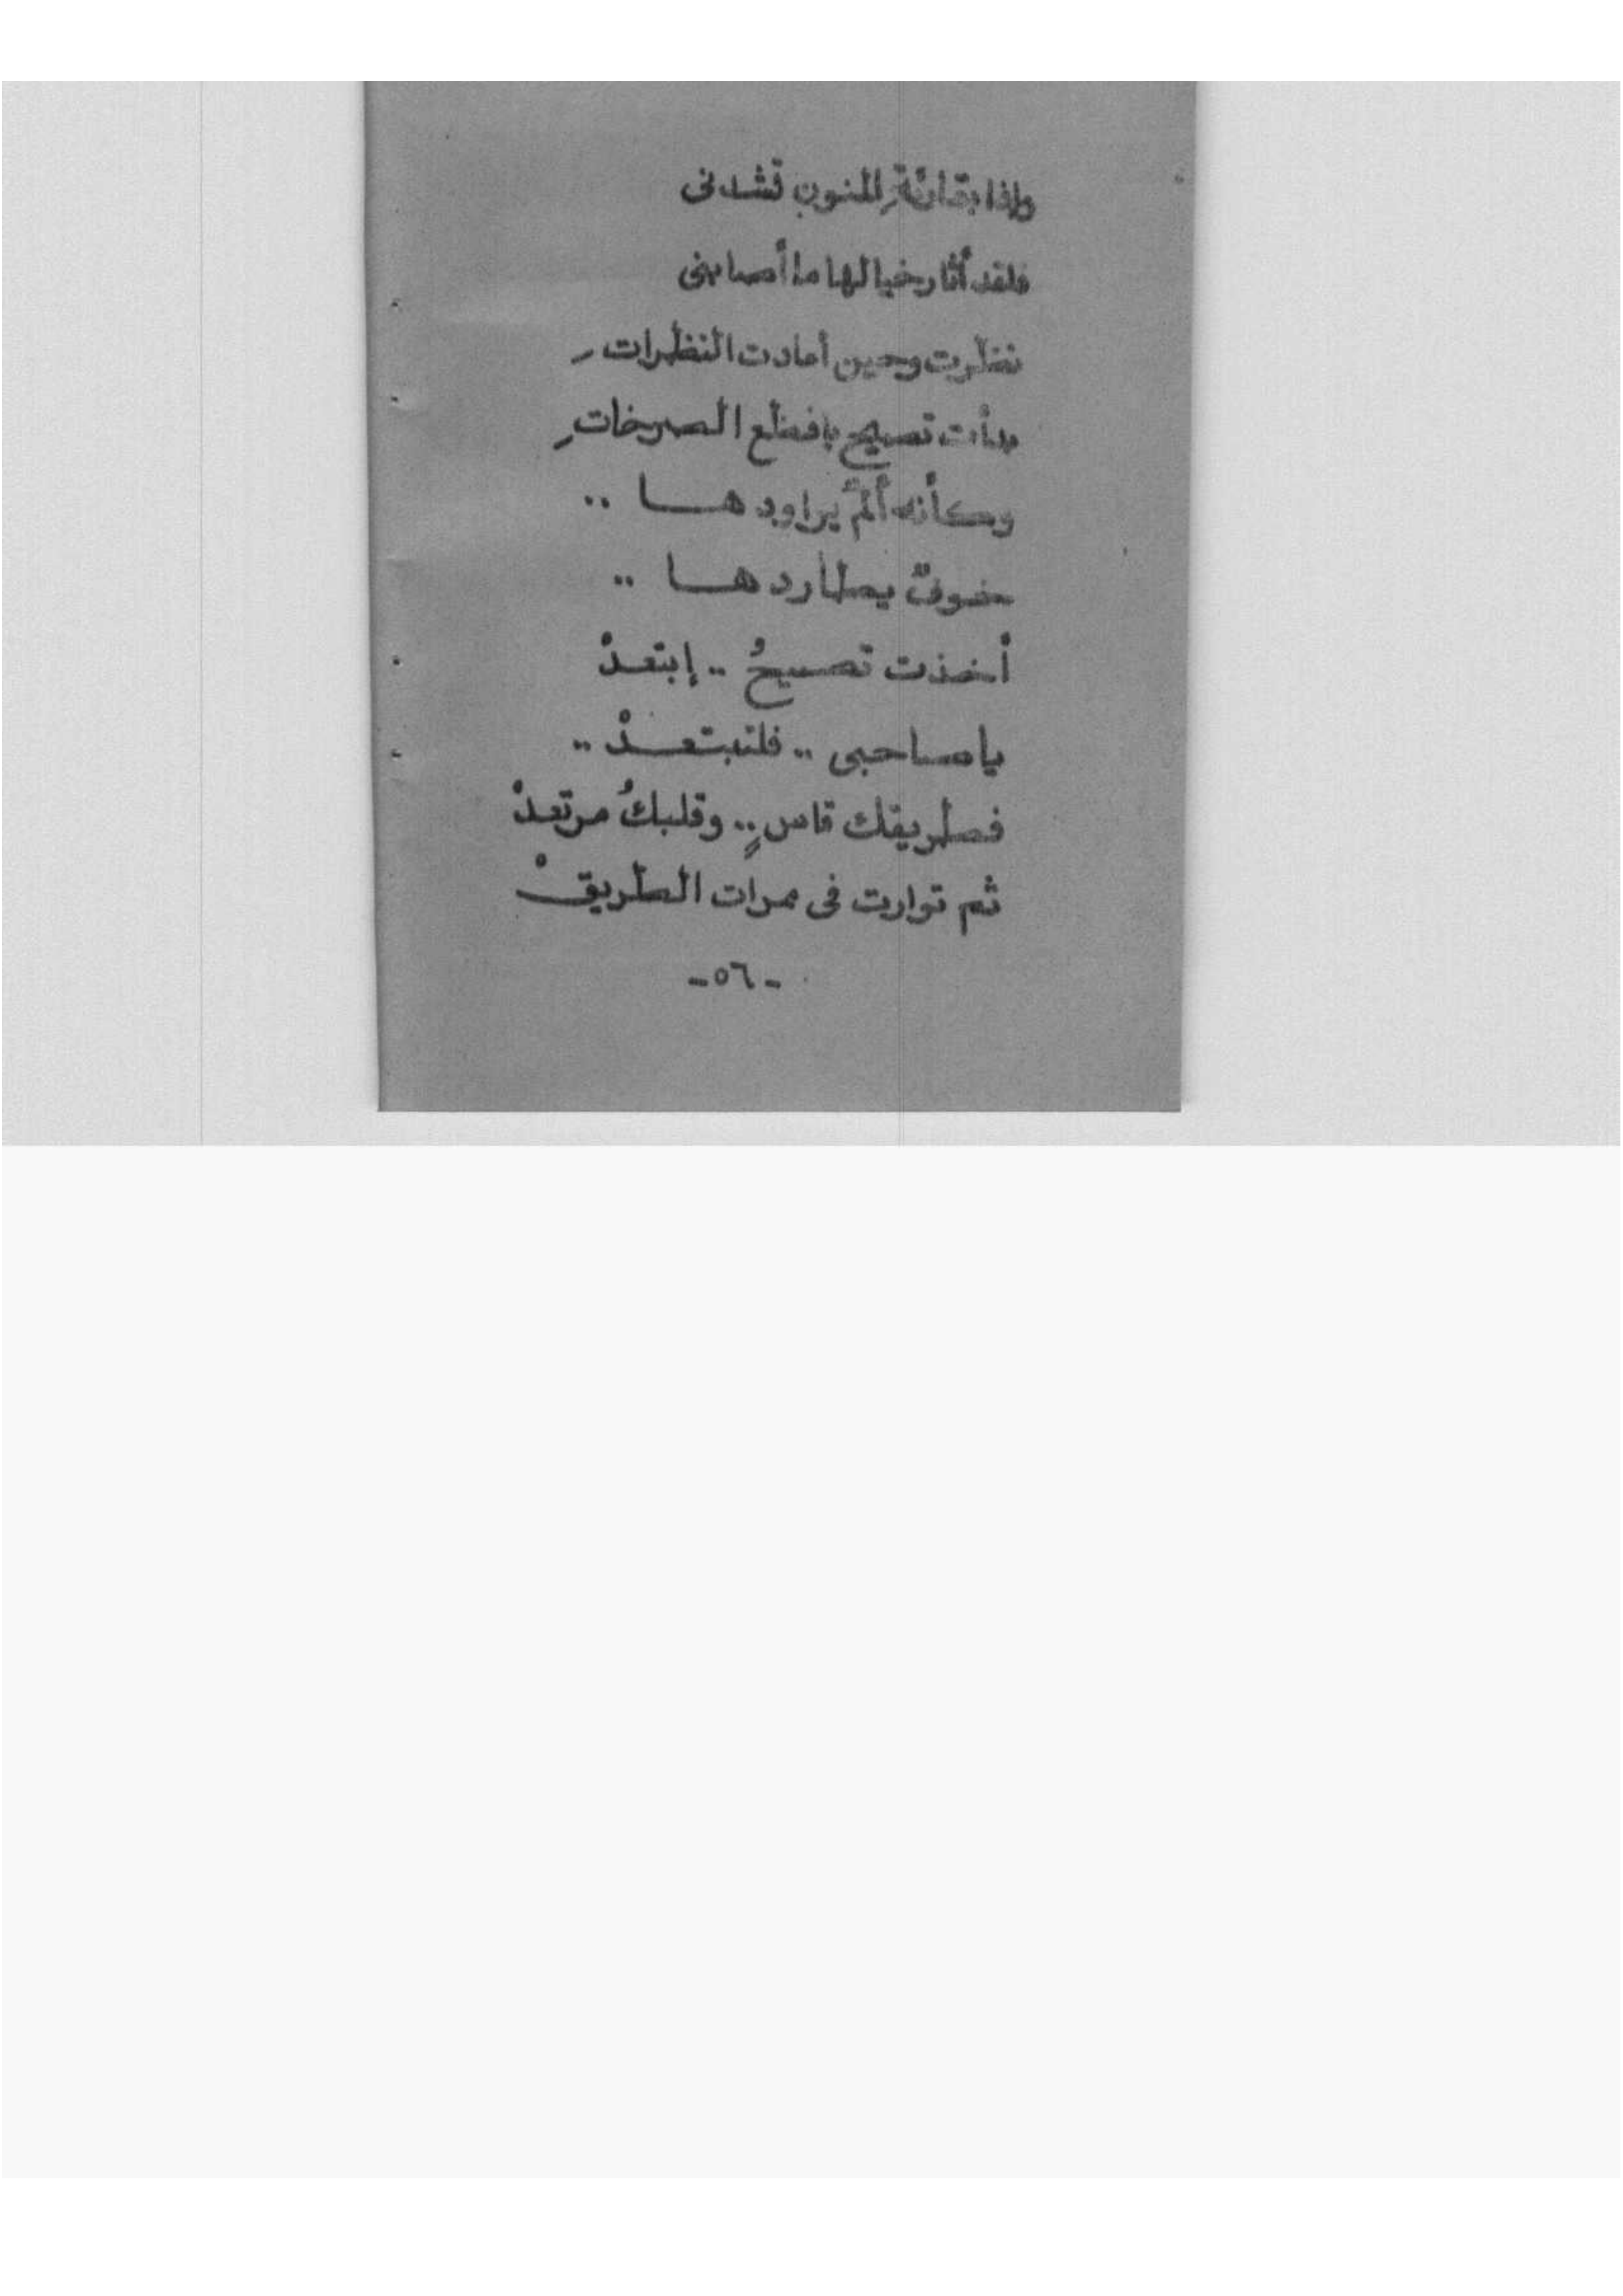 وإذا بقارئةِ المنونِ تشدنى
فلقد أثار خيالها ما أصابنى
نظرت وحين أعادت النظراتِ
بدأت تصيح بافظع الصرخاتِ
وكأنه ألمٌ يراودهــا ..
خوفٌ يطاردهــا ..
أخذت تصيحُ .. إبتعدْ
ياصاحبى .. فلتبتعـدْ ..
فطريقك قاسٍ .. وقلبكُ مرتعدْ
ثم توارت فى ممرات الطريقْ
-٥٦-